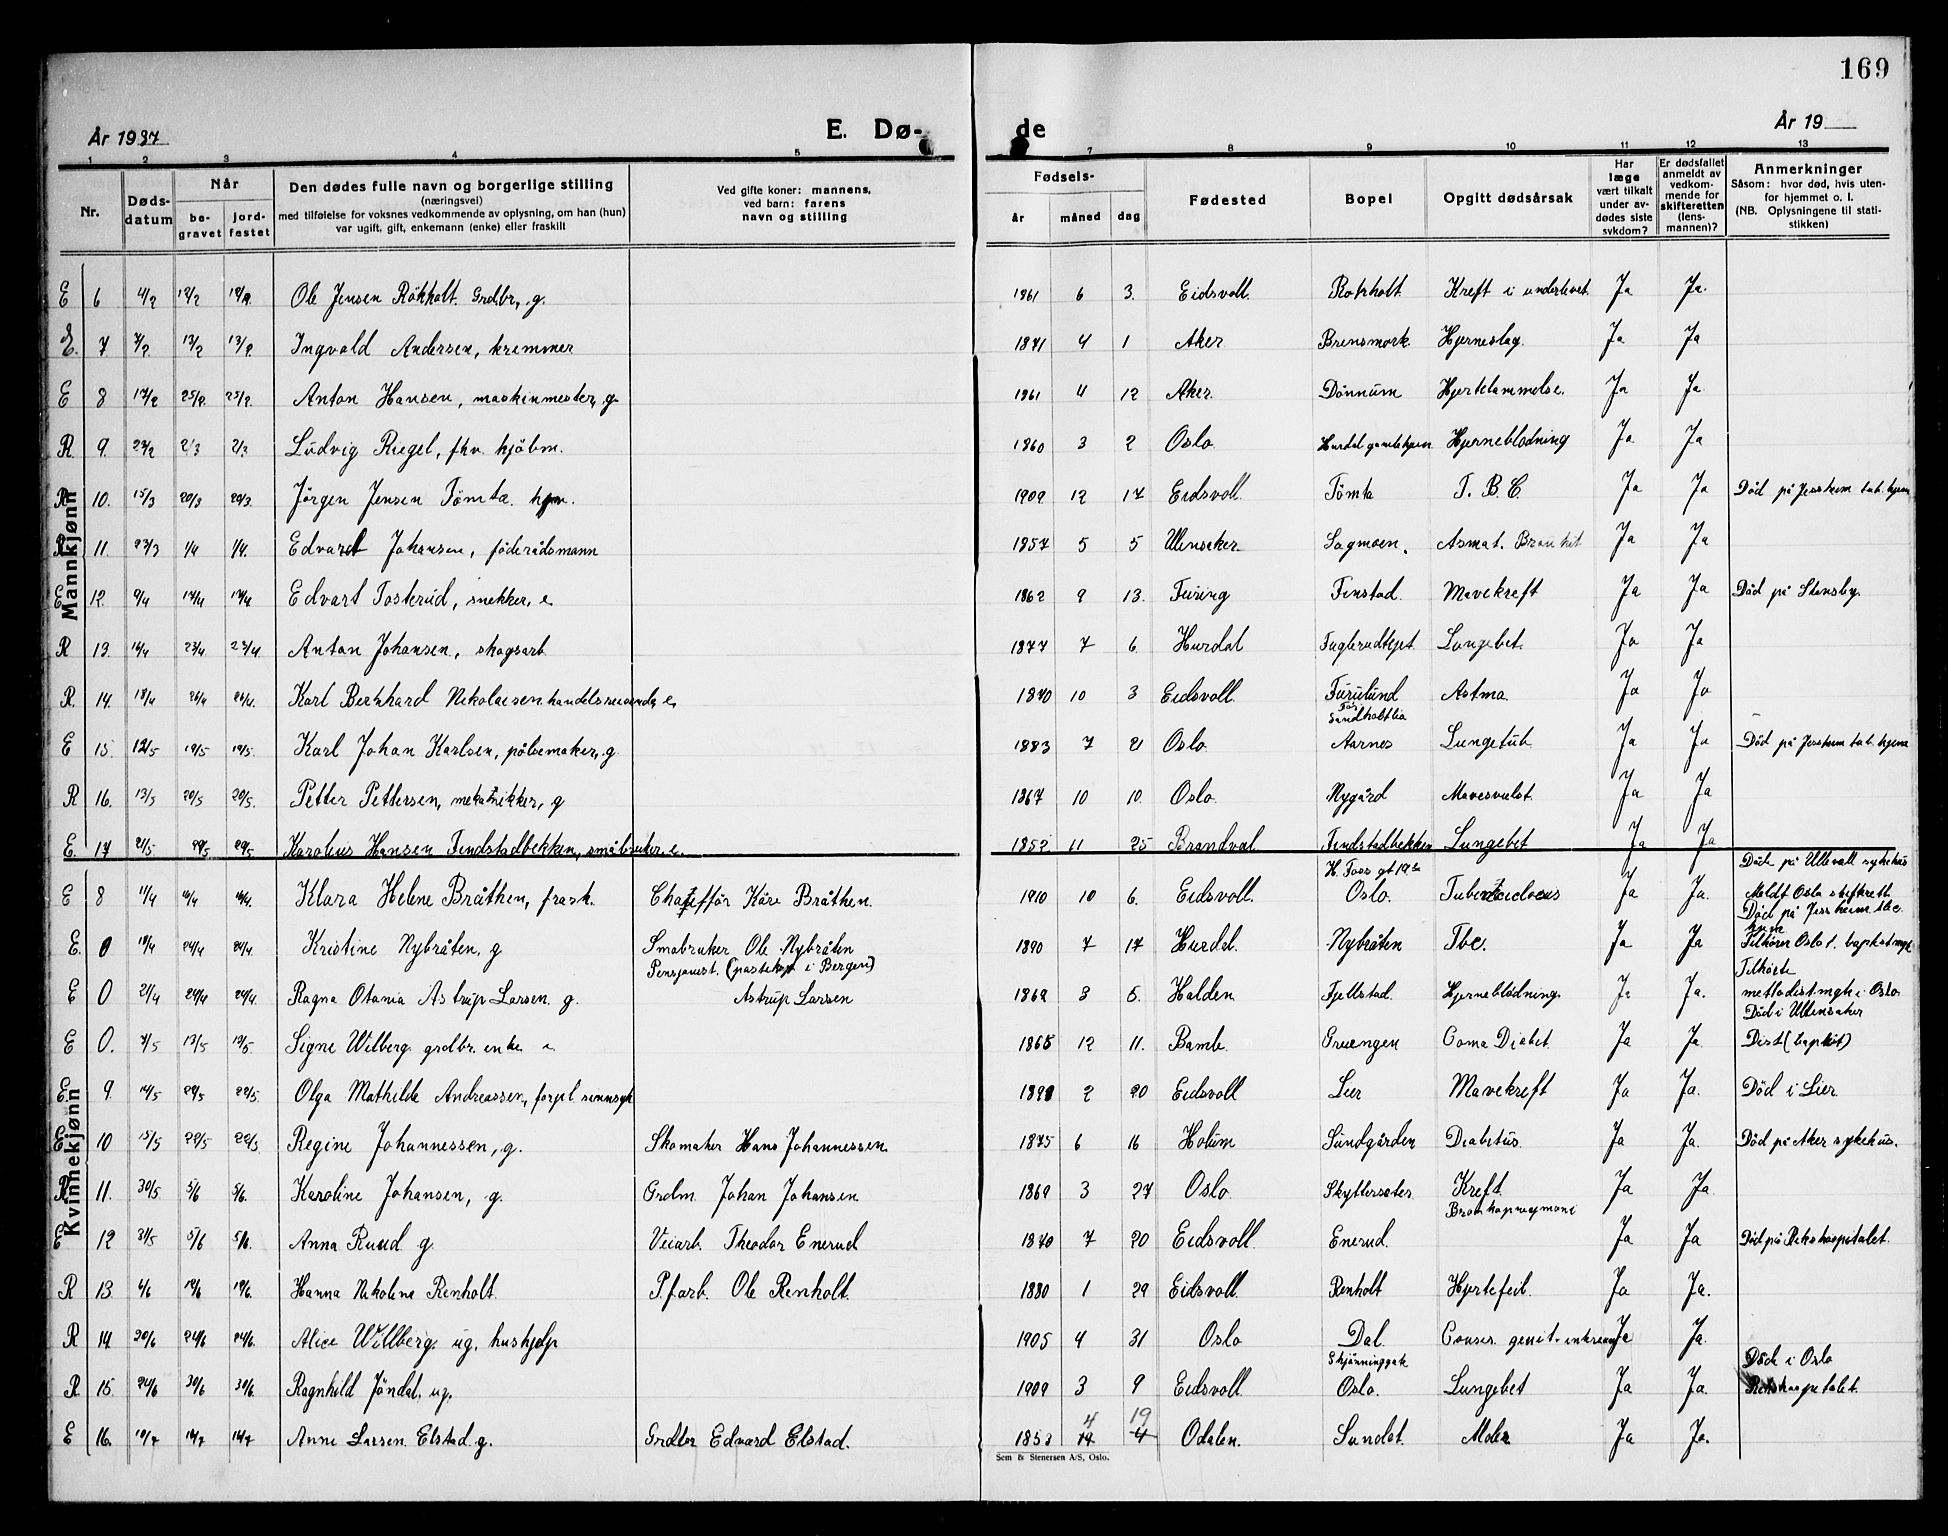 169
År 1937
E. Dø-
de
År 19
1 2 3 4 5 7 8 9 10 11 12 13
Nr.
Døds-
datum
Når
be-
gravet
jord-
festet
Den dødes fulle navn og borgerlige stilling
(næringsvei)
med tilføielse for voksnes vedkommende av oplysning, om han (hun)
var ugift, gift, enkemann (enke) eller fraskilt
Ved gifte koner: mannens,
ved barn: farens
navn og stilling
Fødsels-
år måned dag
Fødested
Bopel
Opgitt dødsårsak
Har
læge
vært tilkalt
under av-
dødes siste
sykdom?
Er dødsfallet
anmeldt av
vedkom-
mende for
skifteretten
(lens-
mannen)?
Anmerkninger
Såsom: hvor død, hvis uten-
for hjemmet o. l.
(NB. Oplysningene til stati-
stikken)
Mannkjønn
E 6 4/2 12/2 Ole Jensen Rökholt Grdbr, g. 1861 6 3. Eidsvoll Rokholt Kreft i underlivet Ja Ja.
E. 7 7/2 13/2 13/2 Ingvald Andersen, kremmer 1871 4 1 Aker Brensmork Hjerneslag. Ja Ja
E 8 17/2 25/2 25/2 Anton Hansen, maskinmester, g. 1861 4 12 Aker. Dönnum Hjertelammelse. Ja Ja
R. 9. 23/2 2/3 2/3 Ludvig Riegel, fhv. kjöbm. 1860 3 2 Oslo Hurdal gamlehjem Hjerneblödning Ja Ja
R 10. 15/3 20/3 20/3 Jörgen Jensen Tömta 1909 12 17 Eidsvoll Tömta T. B. C. Ja Ja Död på Jessheim tub. hjem
R 11. 23/3 1/4 1/4. Edvard Johansen, föderådsmann 1857 5 5 Ullensaker Sagmoen. Asmat. Bronkit Ja Ja
E 12. 9/4 17/4 17/4 Edvart Tosterud, snekker, e 1862 9 13. Feiring Finstad. Mavekreft Ja Ja Död på Stensby.
R 13. 16/4 23/4 23/4. Anton Johansen, skogsarb. 1877 7 6 Hurdal Fuglerudtejet Lungebet. Ja Ja
R. 14. 18/4 26/4 26/4. Karl Bernhard Nikolaisen handelsreisende, e. 1870 10 3 Eidsvoll Furulund Astma Ja Ja
Sandholtlia
E 15. 12/5 19/5 19/5. Karl Johan Karlsen, pölsemaker, g 1883 7 21 Oslo Aarnes Lungetub. Ja Ja Död på Jessheim tub. hjem
R 16. 13/5 20/5 20/5. Petter Pettersen, g 1867 10 10. Oslo. Nygård Mavesvulst. Ja Ja
E. 17 21/5 29/5 29/5. Karolius Hansen Findstadbekken, småbruker, e. 1852 11 25 Brandval Findstadbekken Lungebet Ja Ja
Kvinnekjønn
Döde på Ullevåll sykehus
H. Foss gt 19
E 8 11/4 16/4 16/4. Klara Helene Bråthen, frask. Chaufför Kåre Bråthen. 1910 10 6. Eidsvoll. Oslo. Ja Ja. Meldt Oslo skifterett
Död på Jessheim tbc.
hjem
E. 0 19/4 24/4 24/4. Kristine Nybråten, g Småbruker Ole Nybråten 1890 7 17 Hurdal. Nybråten Tbc. Ja Ja Tilhörer Oslo 1.
Pensjonist. i Bergen) Tilhörte
E 0 21/4 24/4 24/4. Ragna Otania Astrup Larsen g. Astrup Larsen 1869 3 5. Halden. Fjellstad. Hjerneblödning. Ja Ja. metodistmgh. i Oslo
Död i Ullensaker
E 0. 7/5 13/5 13/5. Signe Wilberg. grdbr. enke 1865 12 11. Bamle Coma Diabet. Ja Ja. Dist (baptist)
E 9. 14/5 22/5 22/5. Olga Mathilde Andreassen, forpl. sinnsyk 2 20 Eidsvoll Lier Mavekreft Ja Ja. Död i Lier.
E 10 15/5 22/5 22/5 Regine Johannessen, g. Skomaker Hans Johannessen. 1875 6 16 Holum Sundgården Diabetus. Ja Ja. Död på Aker sykehus.
R 11. 30/5. 5/6 5/6. Karoline Johansen, g. Grdm. Johan Johansen 1869 3 27 Oslo Skyttersæter Kreft. Ja Ja.
E 12 31/5 5/6 5/6. Anna Ruud g. Veiarb. Theodor Enerud 1870 7 20 Eidsvoll Enerud. Ja Ja Död på Rikshospitalet.
R 13. 6/6 12/6 12/6. Hanna Nikoline Renholt. P.farb. Ole Renholt. 1880 1 29 Eidsvoll. Renholt Hjertefeil. Ja Ja.
R 14. 20/6 24/6 24/6. Alice Willberg. ug. hushjelp 1905 4 31 Oslo Dal Ja Ja.
Död i Oslo
R. 15. 24/6 30/6 30/6. Ragnhild Jöndal. ug. 1909 3 9 Eidsvoll. Oslo. Lungebet Ja Ja. Rikshospitalet.
4 19
E 16. 10/7 14/7 14/7 Anne Larsen Elstad g. Grdbr Edvard Elstad. 1853 14 4 Odalen. Sundet. Alder Ja Ja.
Sem & Stenersen A/S, Oslo.